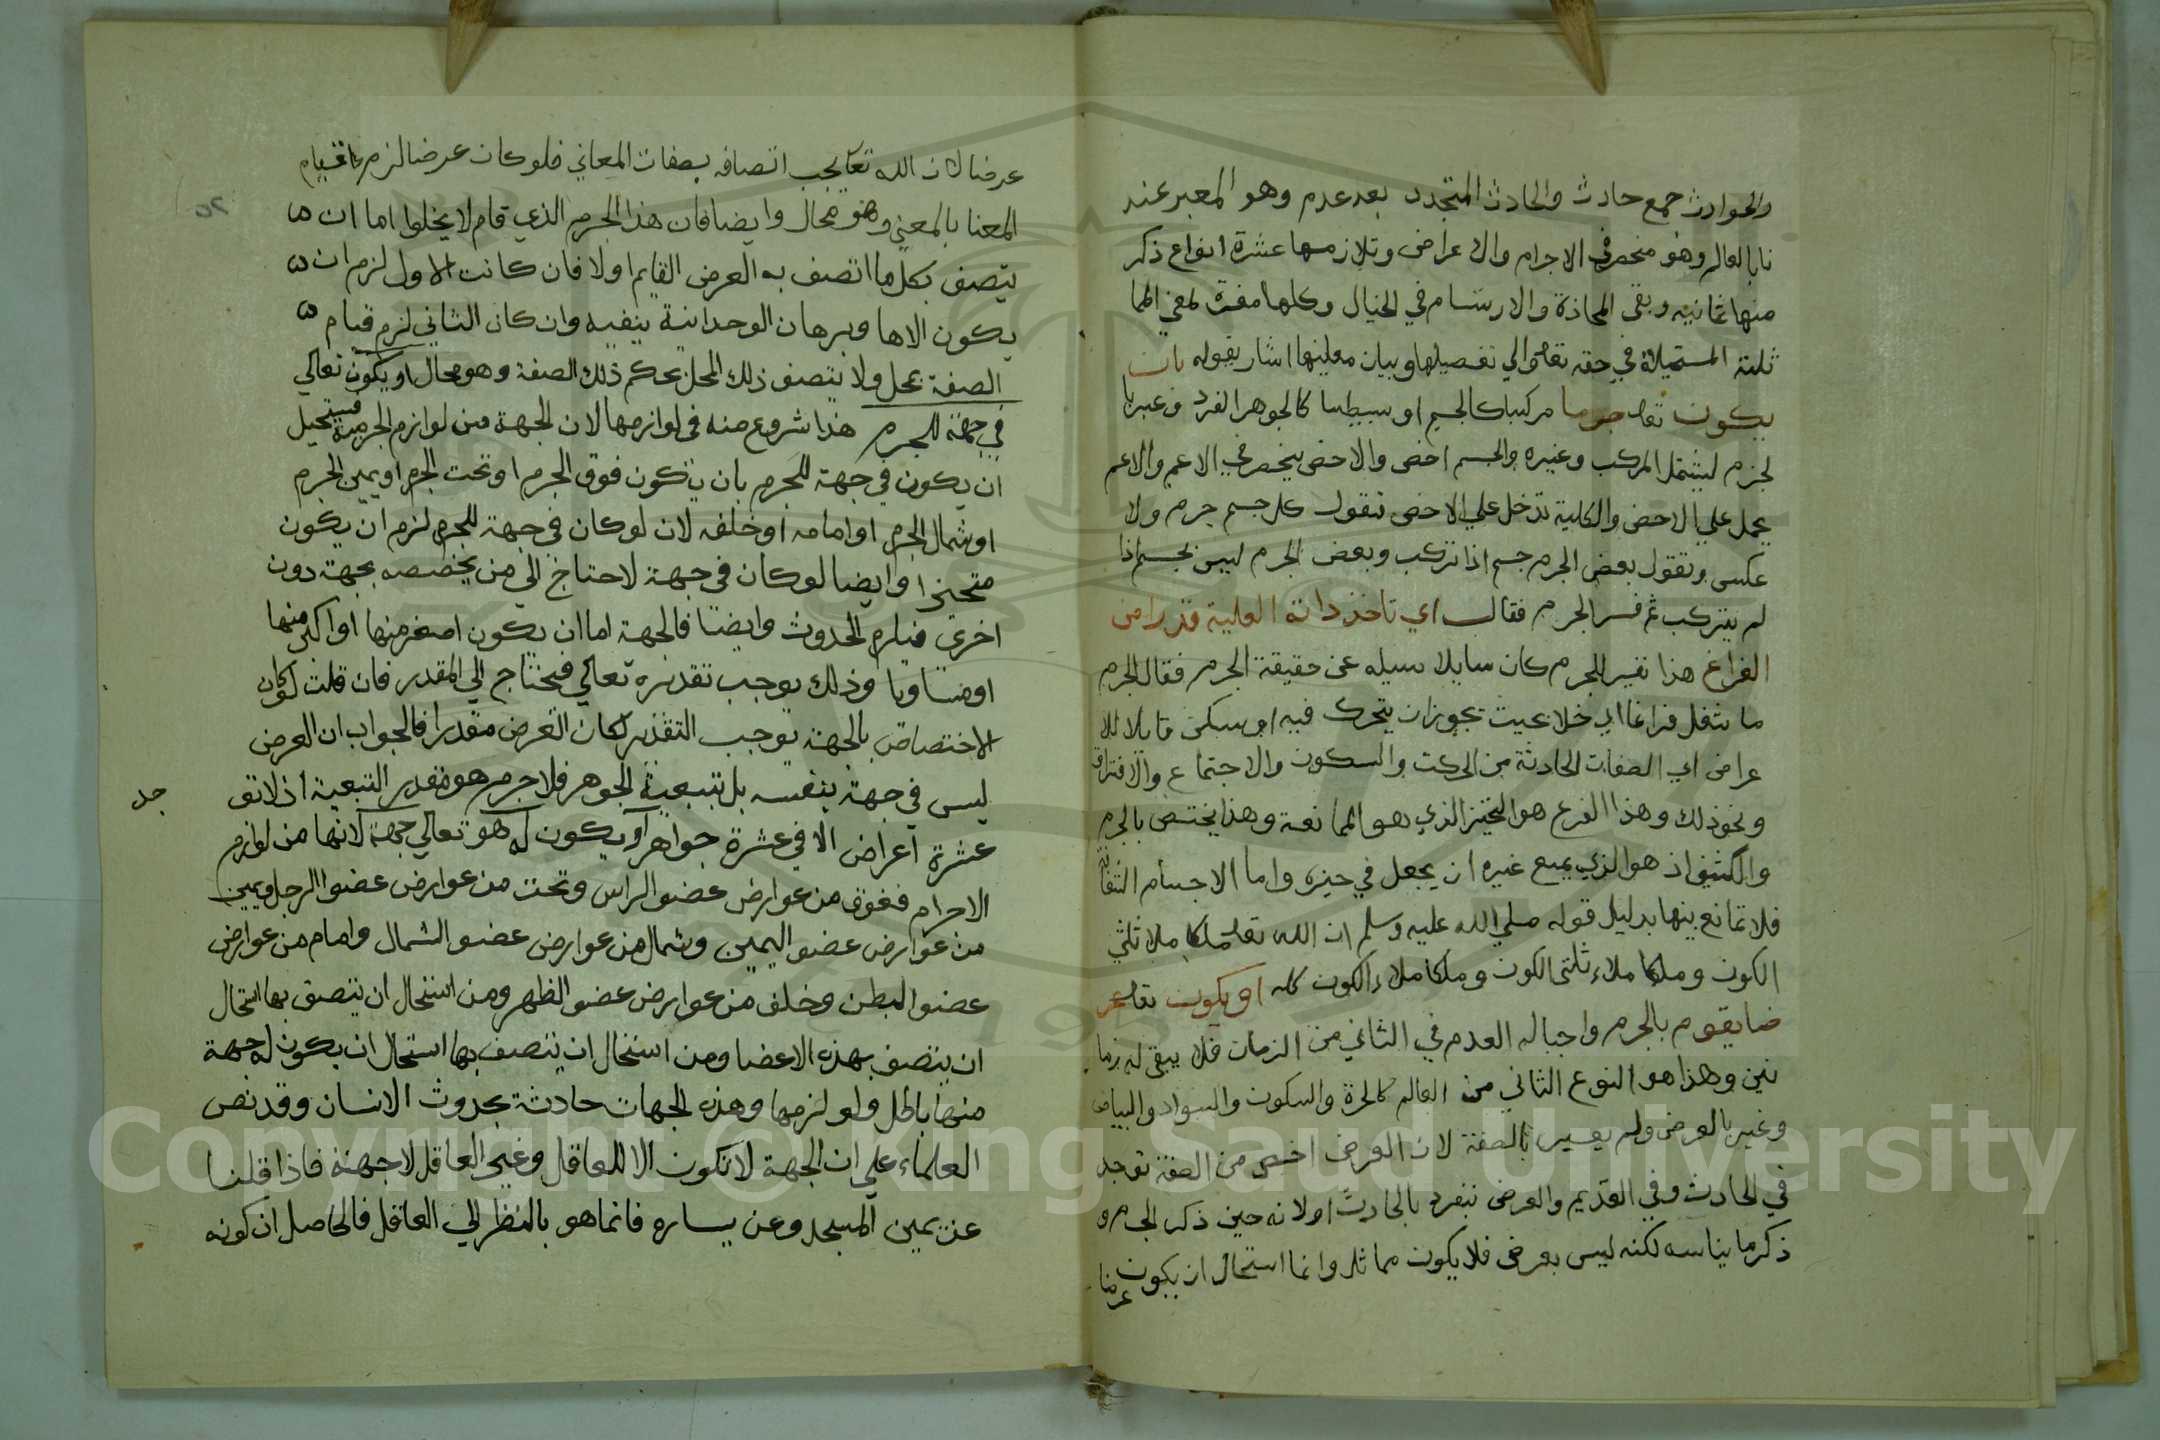 والحوادث جمع حادث والحادث المتجدد بعد عدم وهو المعبر عند
نا بالعالم وهو منحصر في الاجرام والاعراض وتلازمها عشرة انواع ذكر
منها ثمانيه وبقى المحاذة والارتسام في الخيال وكلها مفسرة لمعني المما
ثلته المستحيلاة في حقه تعا والي تفصيلها وبيان معلينها اشار بقوله بان
يكون تعا جرما مركبا كالجسم او بسيطا كالجوهر الفرد وعبر با
لجرم ليشمل المركب وغيره والجسم اخص والاخص ينحصر في الاعم والاعم
يحمل علي الاخص والكلية تدخل علي الاخص فتقول كل جسم جرم ولا
عكس وتقول بعض الجرم جسم اذا تركب وبعض الجرم ليس بجسم اذا
لم يتركب ثم فسر الجرم فقال اي تاخذ ذاته العلية قدرا من
الفراغ هذا تفسير للجرم كان سايلا سيله عن حقيقة الجرم فقال الجرم
ما شغل فراغا اي خلا بحيث يجوز ان يتحرك فيه او يسكن قابلا للا
عراض اي الصفات الحادثة من الحركت والسكون والاجتماع والافتراق
ونحو ذلك وهذا الفرع هو التحيز الذي هو الممانعة وهذا يختص بالجرم
والكثيف اذ هو الذي يمنع غيره ان يجعل في حيزه واما الاجسام الشفافة
فلا تمانع بينها بدليل قوله صلي الله عليه وسلم ان الله تعا ملكا ملا ثلثي
الكون وملكا ملاء ثلثي الكون وملكا ملاء الكون كله او يكون تعا عر
ضا يقوم بالجرم واجبا له العدم في الثاني من الزمان فلا يبقى له زما
نين وهذا هو النوع الثاني من العالم كالحرة والسكون والسواد والبياض
وعبر بالعرض ولم يعبر بالصفة لان العرض اخص من الصفة توجد
في الحادث وفي القديم والعرض ينفرد بالحادث او لانه حين ذكر الجرم و
ذكر ما يناسبه لكنه ليس بعرض فلا يكون مماثله وانما استحال ان يكون عرضا
عرضا لان الله تعا يجب اتصافه بصفات المعاني فلو كان عرضا لزم قيام
المعنا بالمعني وهو محال وايضا فان هذا الجرم الذي قام لا يخلوا اما ان
يتصف بكل ما اتصف به العرض القايم اولا فان كانت الاول لزم ان
يكون الاها وبرهان الوحدانية ينفيه وان كان الثاني لزم قيام
الصفة بمحل ولا يتصف ذلك المحل بحكم ذلك الصفة وهو محال او يكون تعالي
في جهة للجرم هذا شروع منه في لوازمها لان الجهة من لوازم الجرمية فيستحيل
ان يكون في جهة للجرم بان يكون فوق الجرم او تحت الجرم او يمين الجرم
او شمال الجرم او امامه او خلفه لان لو كان في جهة للجرم لزم ان يكون
متحيزا وايضا لو كان في جهة لاحتاج الي من يخصصه بجهة دون
اخري فيلزم الحدوث وايضا فالجهة اما ان يكون اصغر منها او اكبر منها
او متساويا وذلك يوجب تقديره تعالي فيحتاج الي المقدر فان قلت لو كان
الاختصاص بالجهة يوجب التقدير لكان العرض مقدرا فالجواب ان العرض
ليس في جهة بنفسه بل بتبعية الجوهر فلا جرم هو مقدر التبعية اذ لا تق
جد
عشرة اعراض الا في عشرة جواهر او يكون له هو تعالي جهة لانها من لوازم
الاجرام ففوق من عوارض عضو الراس وتحت من عوارض عضو الرجل ويمين
من عوارض عضو اليمين وشمال من عوارض عضو الشمال وامام من عوارض
عضو البطن وخلف من عوارض عضو الظهر ومن استحال ان يتصف بها استحال
ان يتصف بهذه الاعضا ومن استحال ان يتصف بها استحال ان يكون له جهة
منها باطل ولو لزمها وهذه الجهات حادثة بحدوث الانسان وقد نص
العلماء علي ان الجهة لا تكون الا للعاقل وغير العاقل لا جهة فاذا قلنا
عن يمين المسجد وعن يساره فانما هو بالنظر الي العاقل فالحاصل ان كونه
Copyright © King Saud University